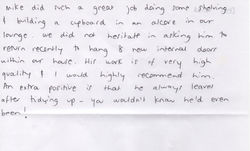 Mike did such a great job doing some shelving
& building a cupboard in an alcove in our
lounge, we did not hesitate in asking him to
return recently to hang 8 new internal doors
within our house. His work is of very high
quality & I would highly recommend him.
An extra positive is that he always leaves
after tidying up - you wouldn't know he'd even
been!